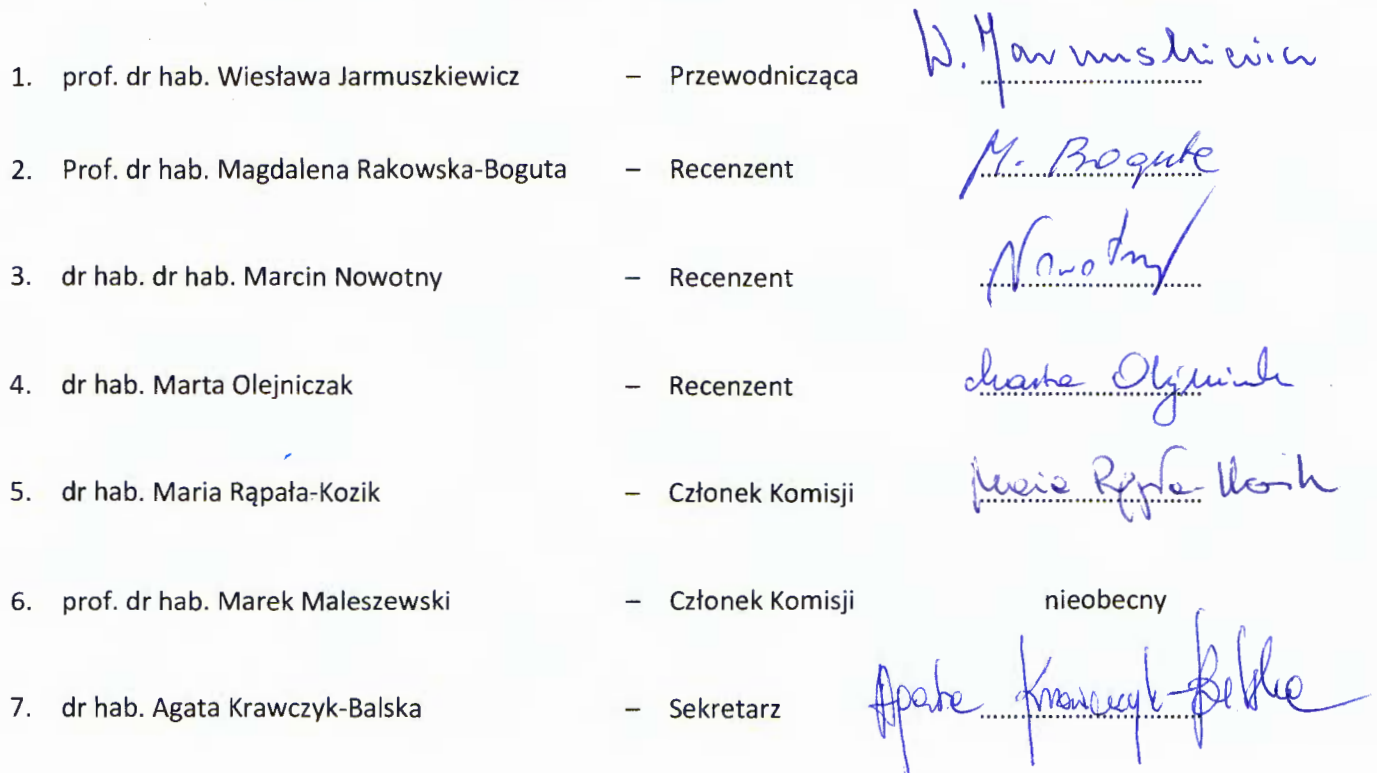 1. prof. dr hab. Wiesława Jarmuszkiewicz – Przewodnicząca W. Jarmuszkiewicz
2. Prof. dr hab. Magdalena Rakowska-Boguta – Recenzent M. Boguta
3. dr hab. dr hab. Marcin Nowotny – Recenzent Nowotny
4. dr hab. Marta Olejniczak – Recenzent Marta Olejniczak
5. dr hab. Maria Rąpała-Kozik – Członek Komisji Maria Rąpała-Kozik
6. prof. dr hab. Marek Maleszewski – Członek Komisji nieobecny
7. dr hab. Agata Krawczyk-Balska – Sekretarz Agata Krawczyk-Balska